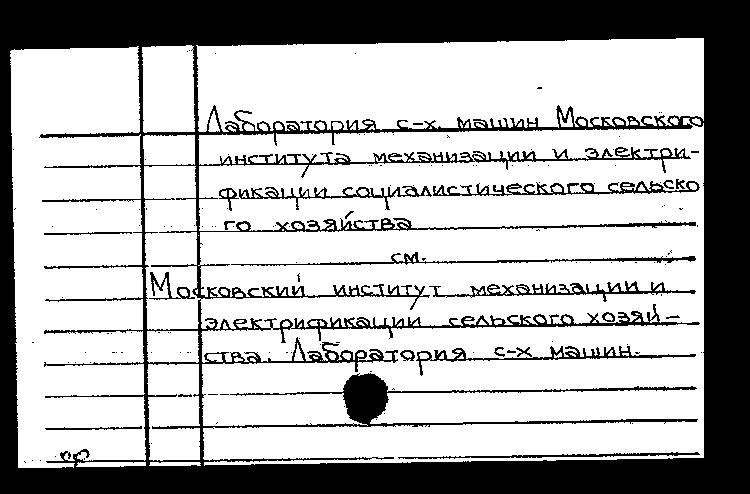 Лаборатория с-х. машин Московского
института механизации и электри-
фикации социалистического сельско
го хозяйства
см.
Московский институт механизации и
электрификации сельского хозяй-
ства. Лаборатория с-х машин.